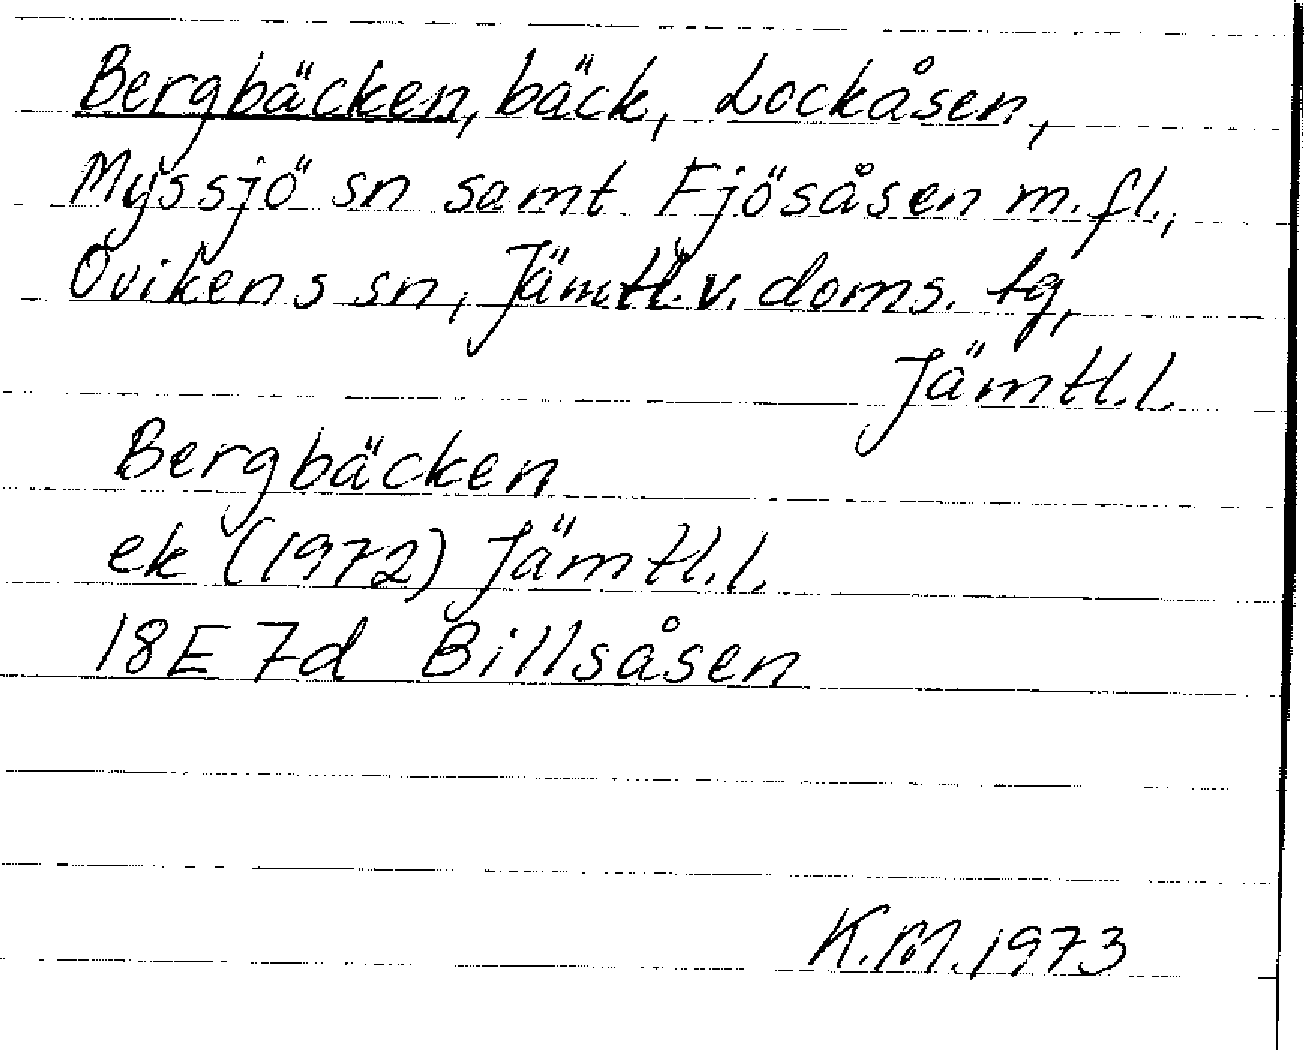 Bergbäcken, bäck, Lockåsen,
Myssjö sn samt Fjösåsen m.fl.,
Ovikens sn, Jämtl.v. doms. tg,
Jämtl.l.
Bergbäcken
ek (1972) Jämtl.l.
18E 7d Billsåsen
K.M. 1973